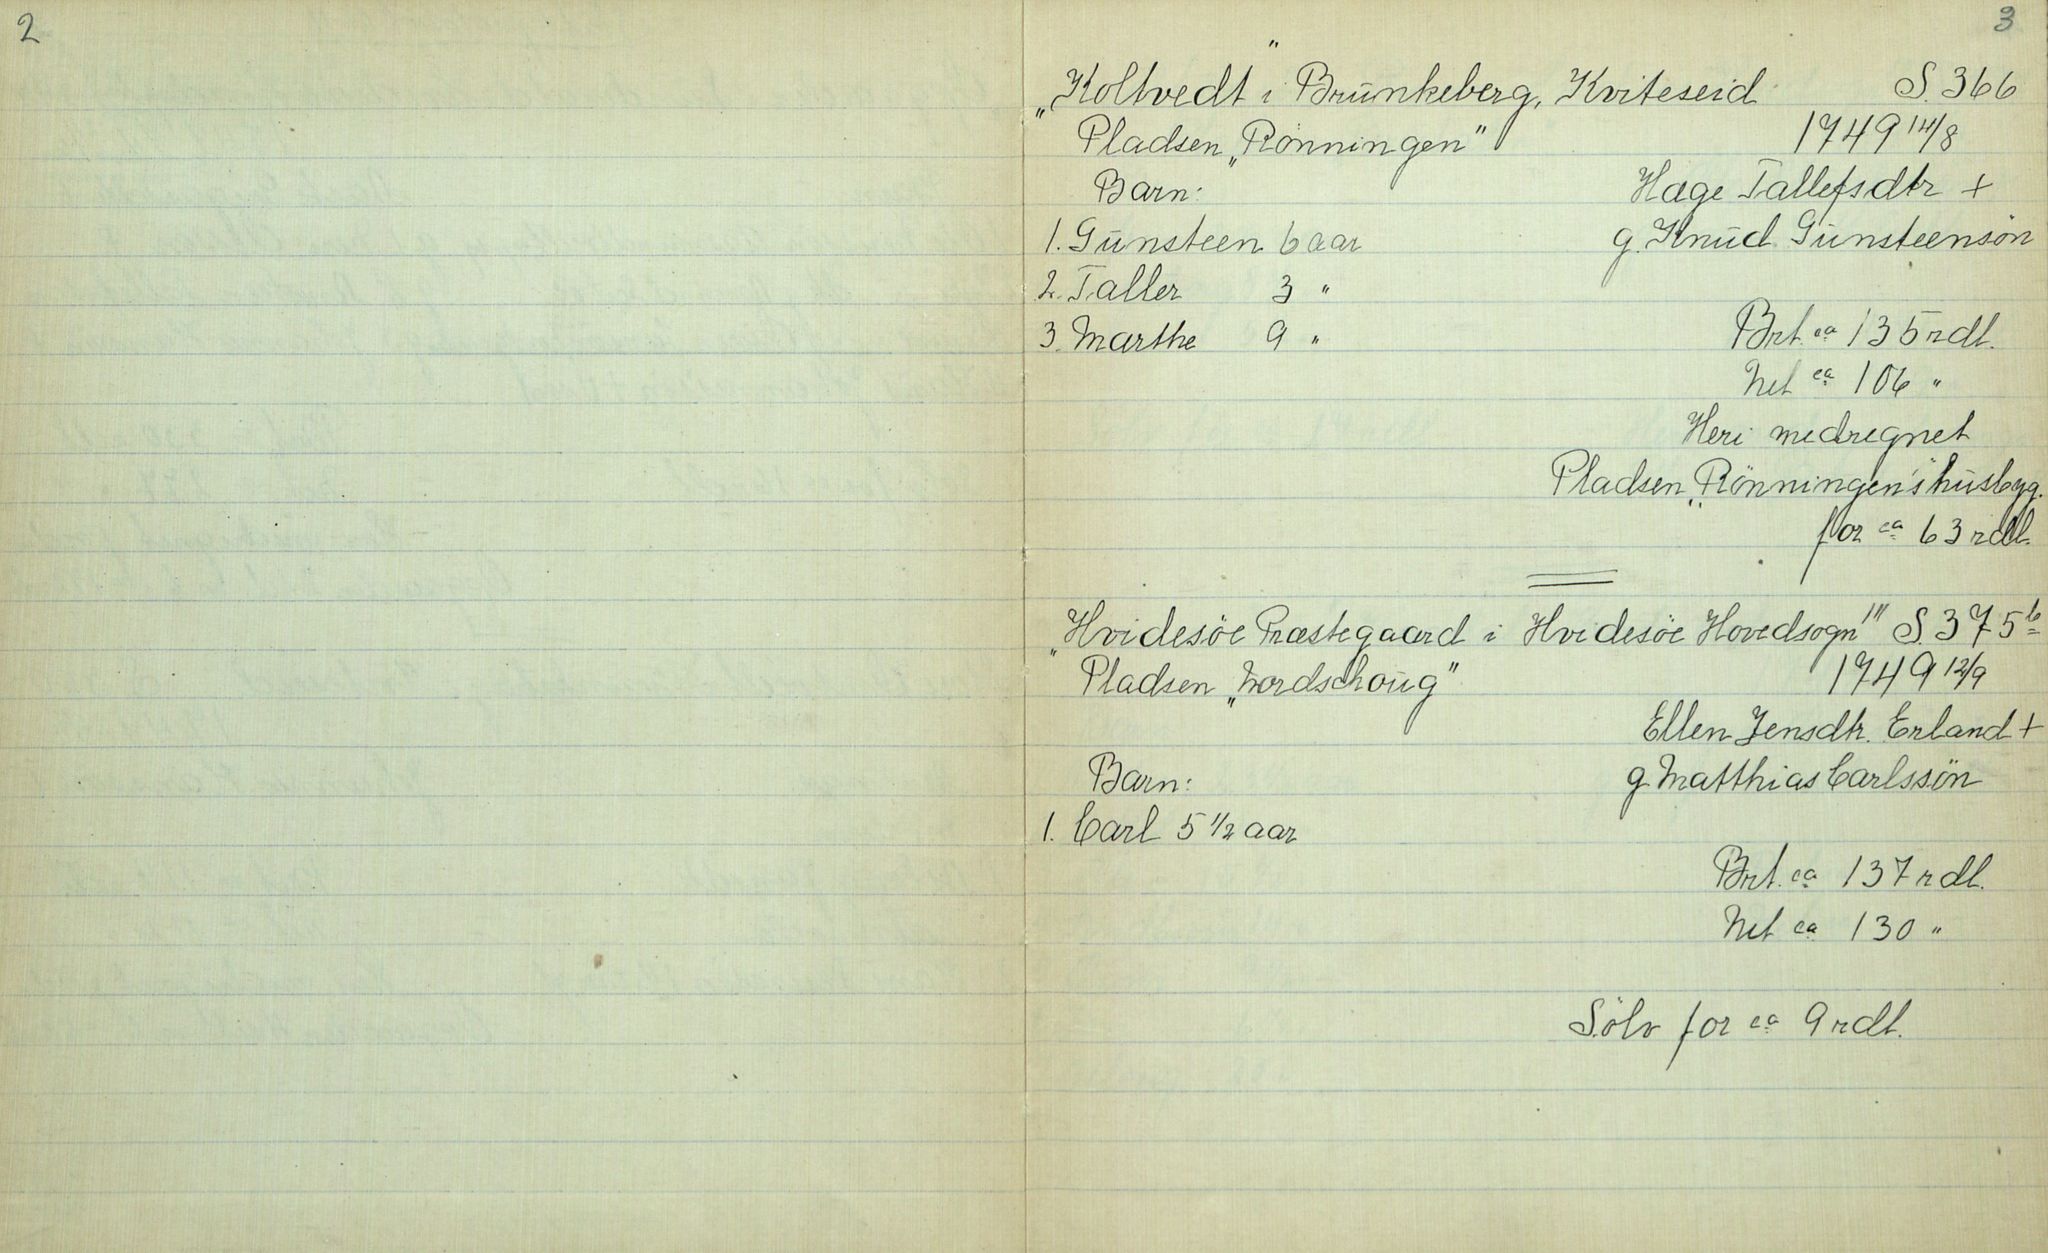 2
3
„Koltvedt" i Brunkeberg, Kviteseid S. 366
Pladsen „Rönningen" 1749 14/8
Barn: Hæge Tallefsdtr +
1. Gunsteen 6 aar g. Knud Gunsteensön
2. Taller 3 "
3. Marthe 9 " Brt. ca 135 rdl.
Net ca 106 "
Heri medregnet
Pladsen „Rönningen's" husbyg.
for ca 63 rdl.
„Hvidesöe Præstegaard i Hvidesöe Hovedsogn" S. 375 b
Pladsen „Nordschoug" 1749 12/9
Ellen Jensdtr. Erland +
Barn: g. Matthias Carlssön
1. Carl 5 1/2 aar
Brt. ca 137 rdl.
Net ca 130 "
Sölv for ca 9 rdl.